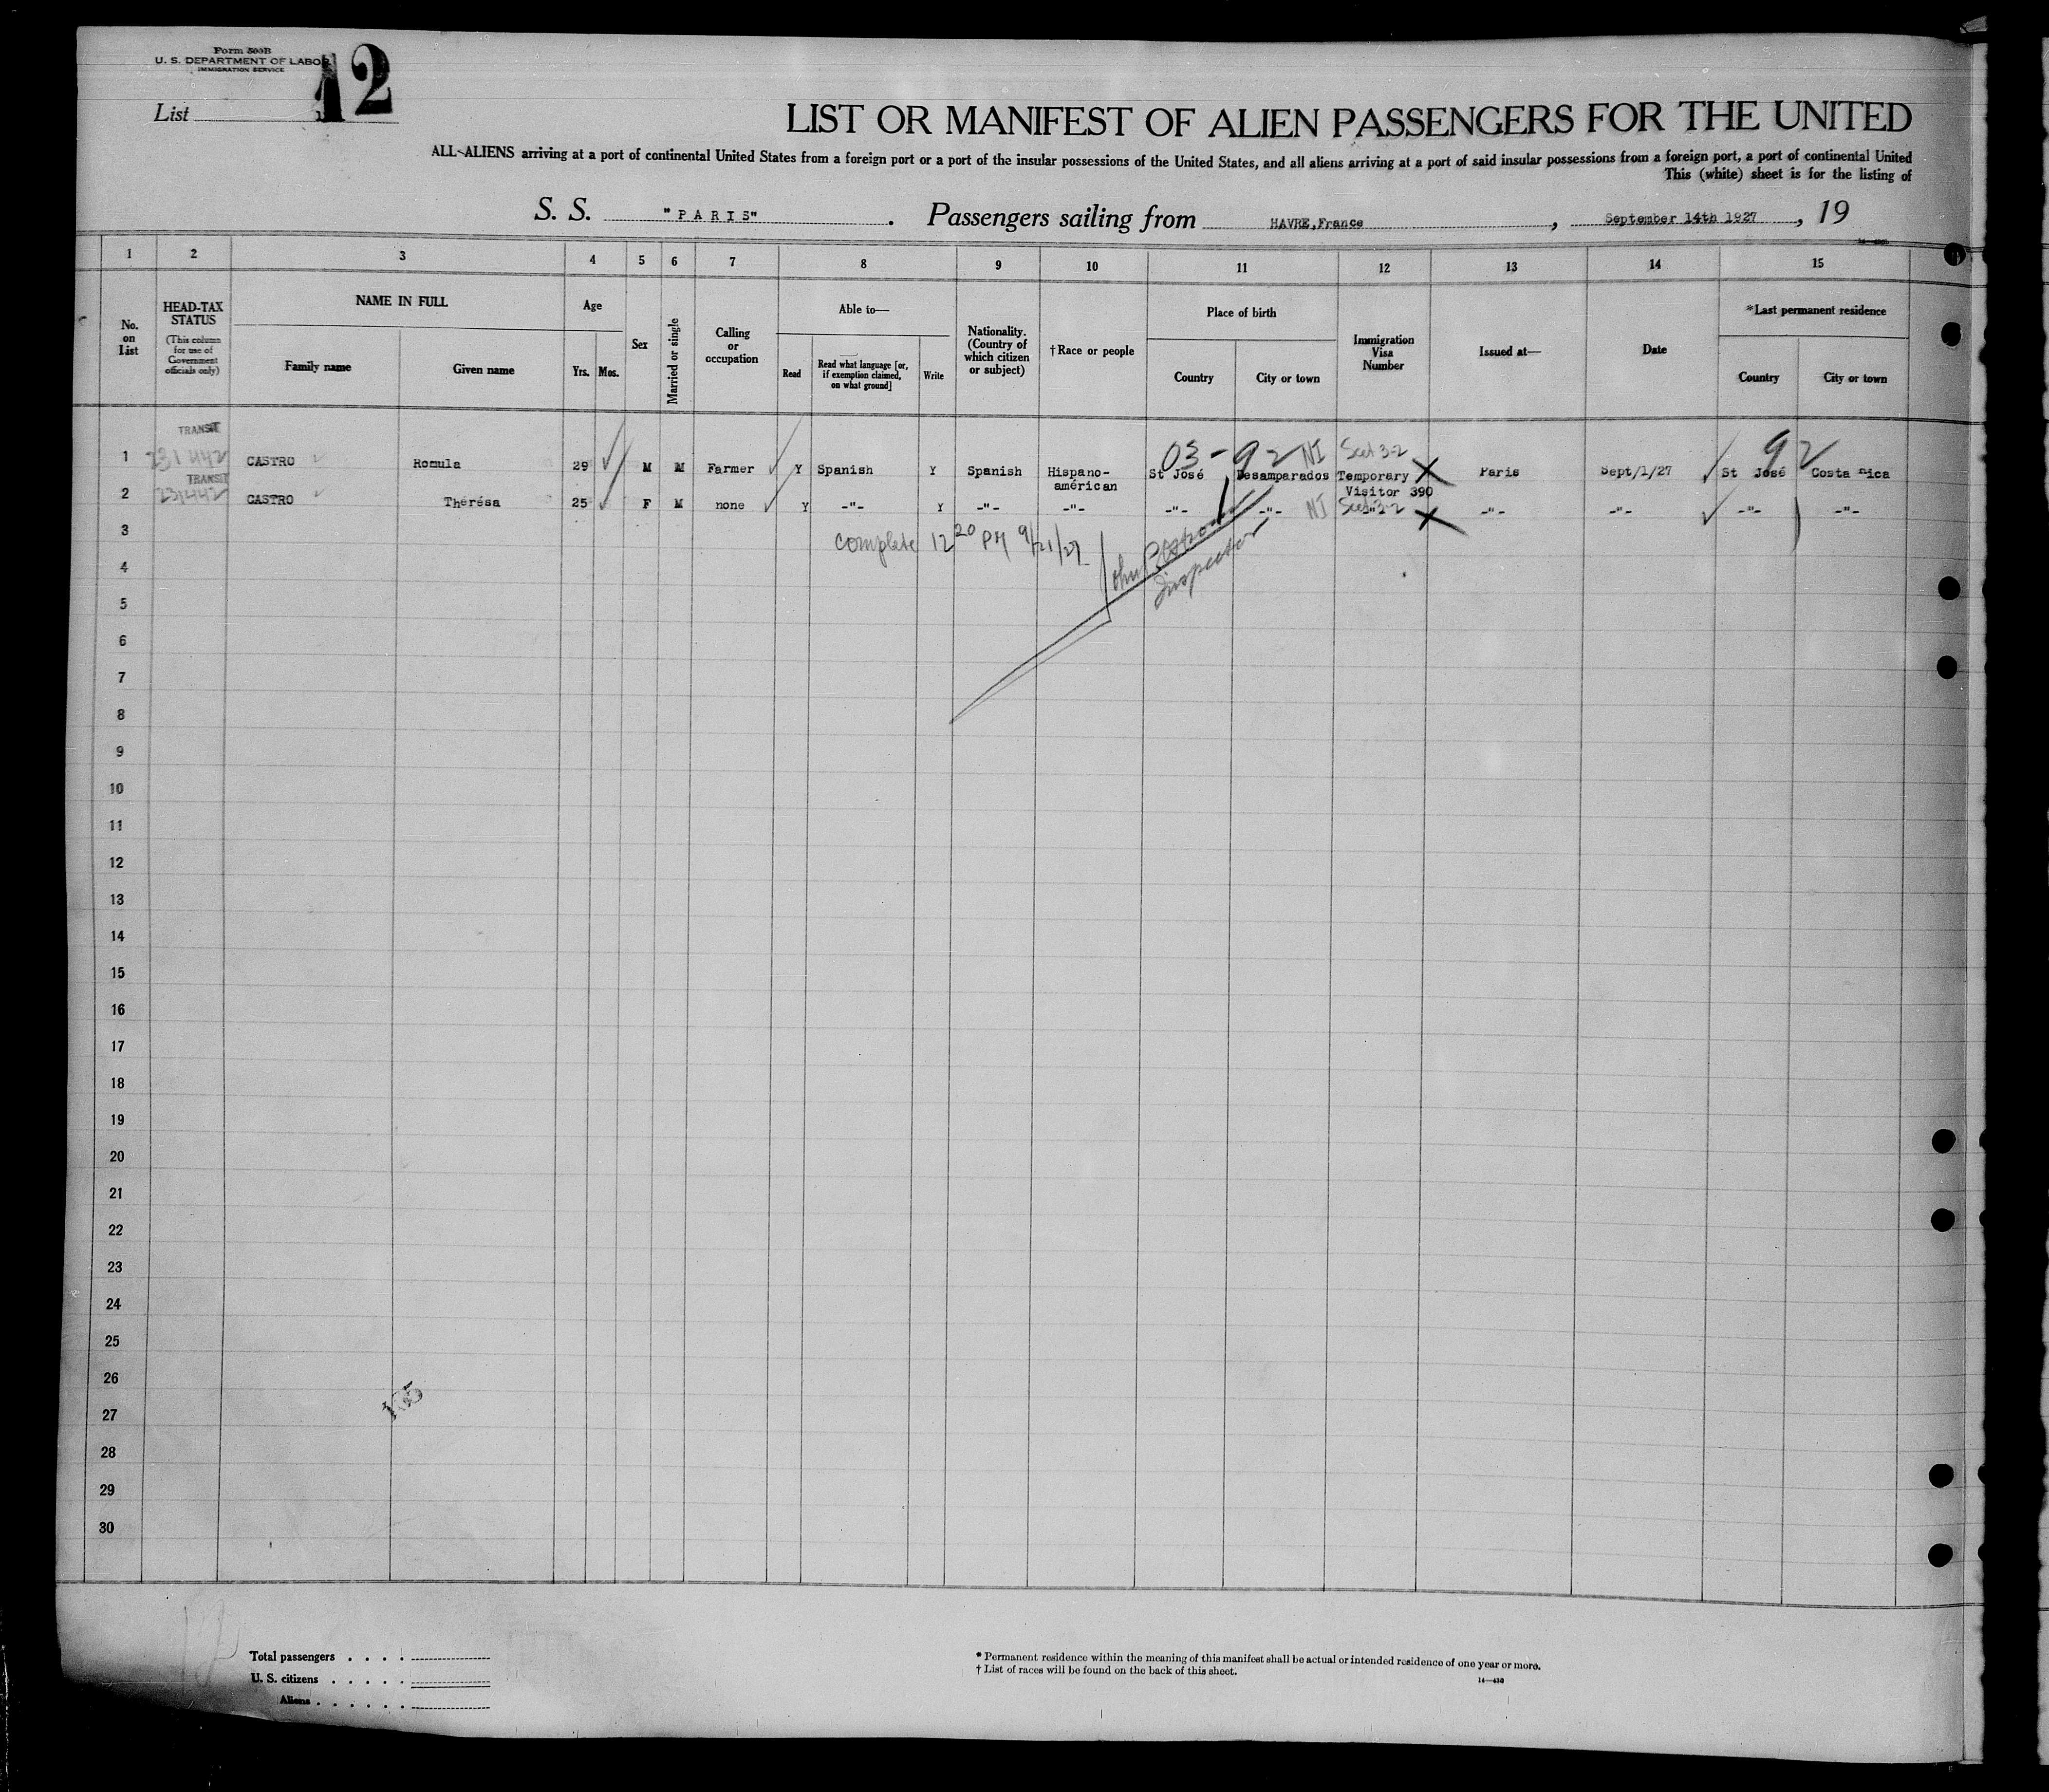 Form 500B
U. S. DEPARTMENT OF LABOR
IMMIGRATION SERVICE
12
List
LIST OR MANIFEST OF ALIEN PASSENGERS FOR THE UNITED
ALL ALIENS arriving at a port of continental United States from a foreign port or a port of the insular possessions of the United States, and all aliens arriving at a port of said insular possessions from a foreign port, a port of continental United
This (white) sheet is for the listing of
S. S. "PARIS". Passengers sailing from HAVRE,France, September 14th 1927, 19
1 2 3 4 5 6 7 8 9 10 11 12 13 14 15
No. on List
HEAD-TAX STATUS
(This column for use of Government officials only)
NAME IN FULL
Family name
Given name
Age
Yrs. Mos.
Sex
Married or single
Calling or occupation
Able to—
Read
Read what language [or, if exemption claimed, on what ground]
Write
Nationality. (Country of which citizen or subject)
†Race or people
Place of birth
Country
City or town
Immigration Visa Number
Issued at—
Date
*Last permanent residence
Country
City or town
TRANSIT
03-92 NI Sect 3-2 92
1 231442 CASTRO Romula 29 M M Farmer Y Spanish Y Spanish Hispano-américan St José Desamparados Temporary Visitor 390 Paris Sept/1/27 St José Costa Rica
TRANSIT
2 231442 CASTRO Thérésa 25 F M none Y -"- Y -"- -"- -"- -"- NI Sect 3-2 -"- -"- -"- -"- -"-
3
complete 12 20 PM 9/21/27
John
Inspector
4
5
6
7
8
9
10
11
12
13
14
15
16
17
18
19
20
21
22
23
24
25
26
165
27
28
29
30
12
Total passengers . . . .
U. S. citizens . . . . .
Aliens . . . . . .
* Permanent residence within the meaning of this manifest shall be actual or intended residence of one year or more.
† List of races will be found on the back of this sheet.
14—430